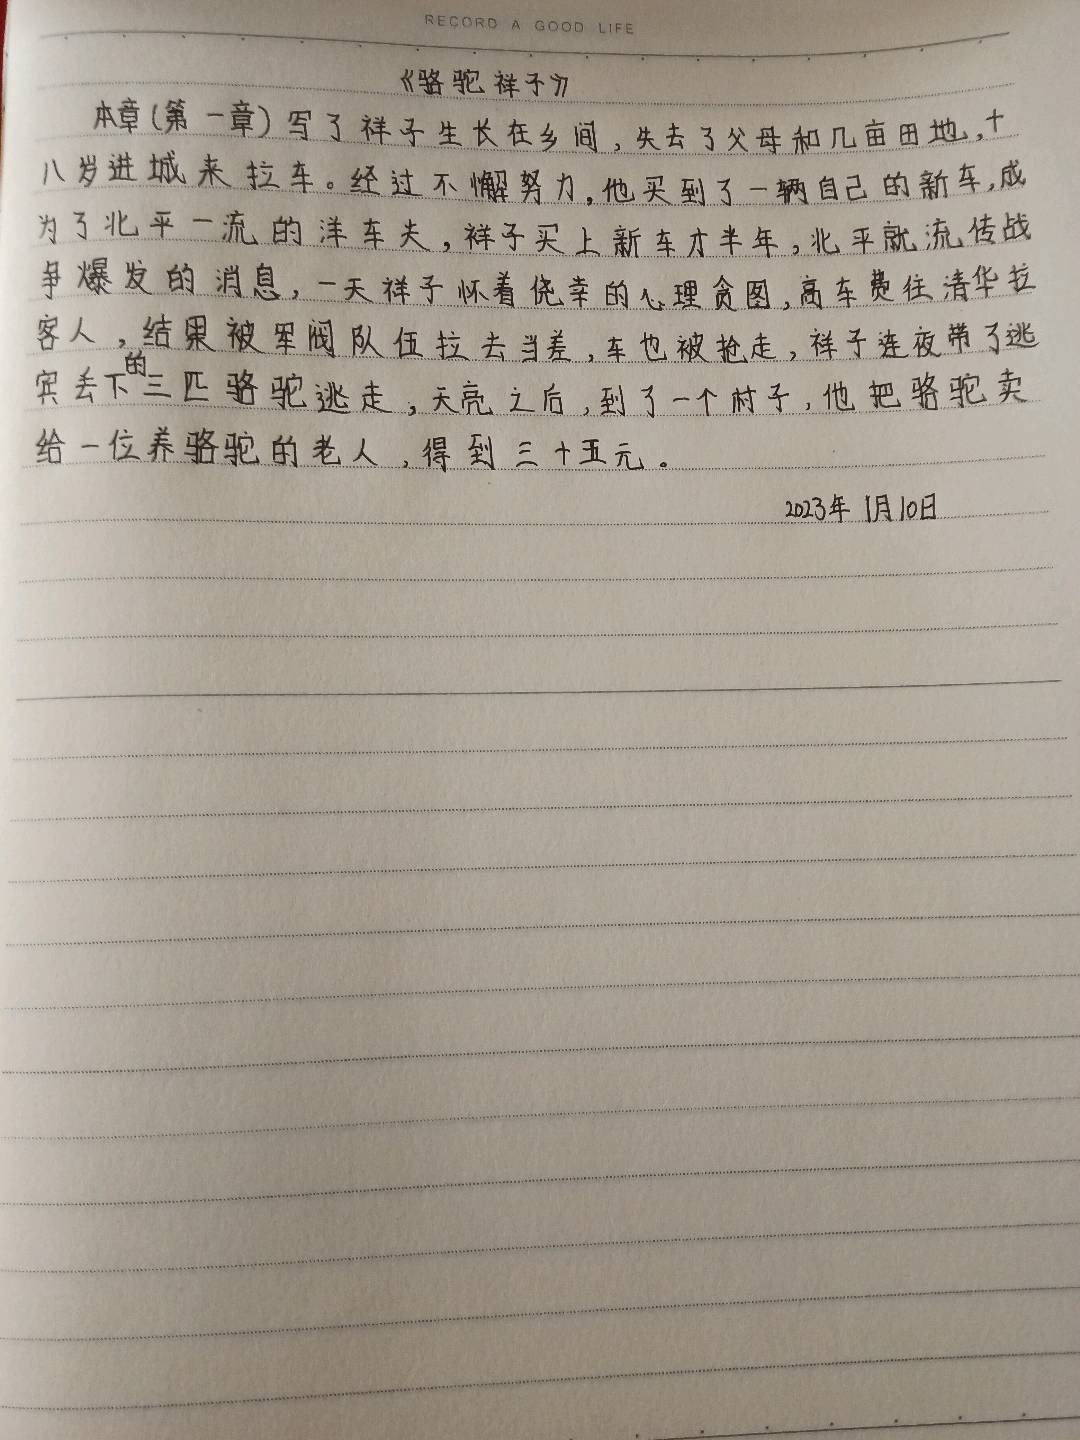 RECORD A GOOD LIFE
《骆驼祥子》
本章(第一章)写了祥子生长在乡间,失去了父母和几亩田地,十
八岁进城来拉车。经过不懈努力,他买到了一辆自己的新车,成
为了北平一流的洋车夫,祥子买上新车才半年,北平就流传战
争爆发的消息,一天祥子怀着侥幸的心理贪图,高车费往清华拉
客人,结果被军阀队伍拉去当差,车也被抢走,祥子连夜带了逃
宾丢下的三匹骆驼逃走,天亮之后,到了一个村子,他把骆驼卖
给一位养骆驼的老人,得到三十五元。
2023年1月10日